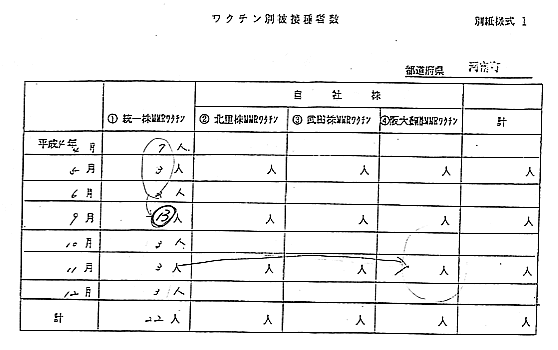 ワクチン別被接種者数
別紙様式 1
都道府県 河南町
自社株
① 統一株MMRワクチン ② 北里株MMRワクチン ③ 武田株MMRワクチン ④阪大微研MMRワクチン 計
平成4年
4月 7人
5月 3人 人 人 人 人
6月 人
9月 13人 人 人 人 人
10月 3人
11月 3人 人 人 人 人
12月 3人
計 22人 人 人 人 人